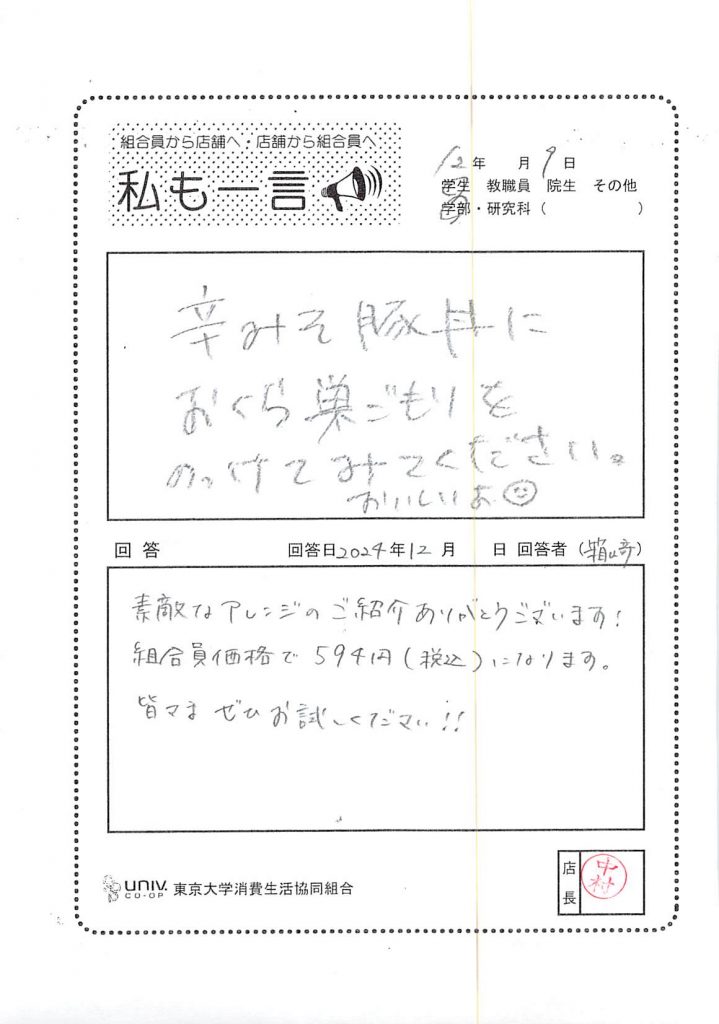 組合員から店舗へ・店舗から組合員へ
私も一言
12年 月9日
学生 教職員 院生 その他
学部・研究科（ ）
辛みそ豚丼に
おくら巣ごもりを
のっけてみてください。
おいしいよ
回答 回答日2024年12月 日 回答者（箱崎）
素敵なアレンジのご紹介ありがとうございます!
組合員価格で594円(税込)になります。
皆さまぜひお試しください!!
UNIV. CO-OP 東京大学消費生活協同組合
店長
中村